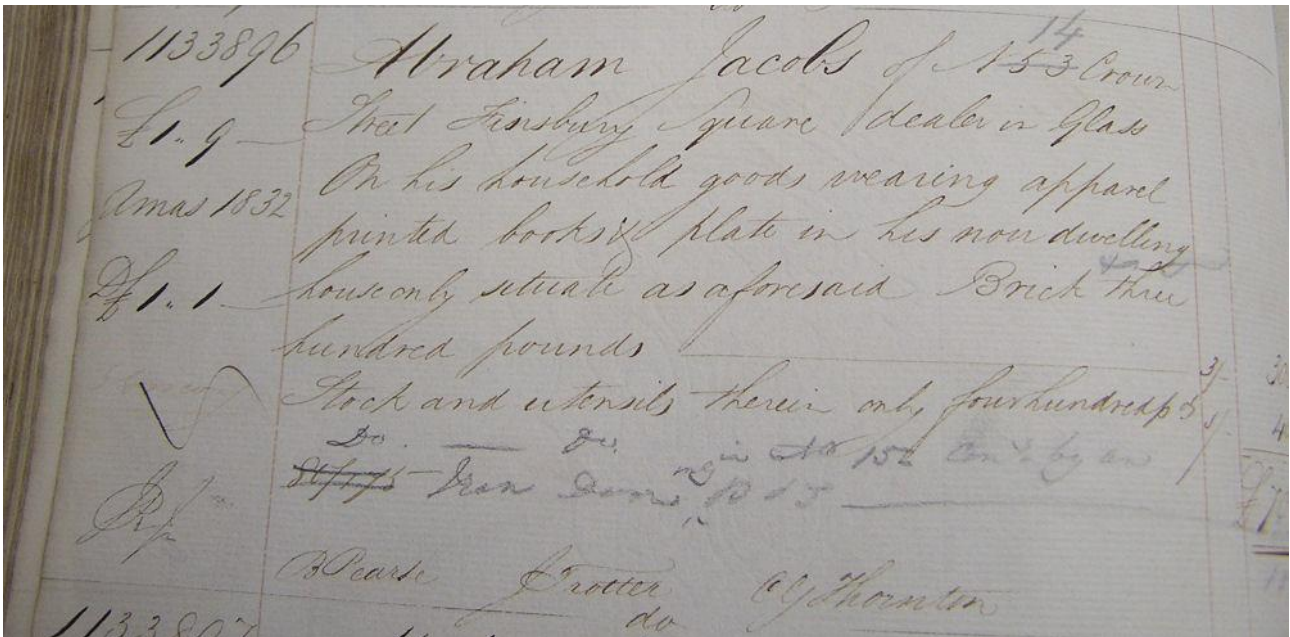 14
1133896 Abraham Jacobs of N 53 Crown
£1.. 9 — Street Finsbury Square dealer in Glass
On his household goods wearing apparel
Xmas 1832 printed books & plate in his now dwelling
D£ 1.. 1 — house only situate as aforesaid Brick three
hundred pounds
Stock and utensils therein only four hundred p
Do. — Do. in No 152 by an
Iron Door
B Pearse J Trotter C G Thornton
1133897 do